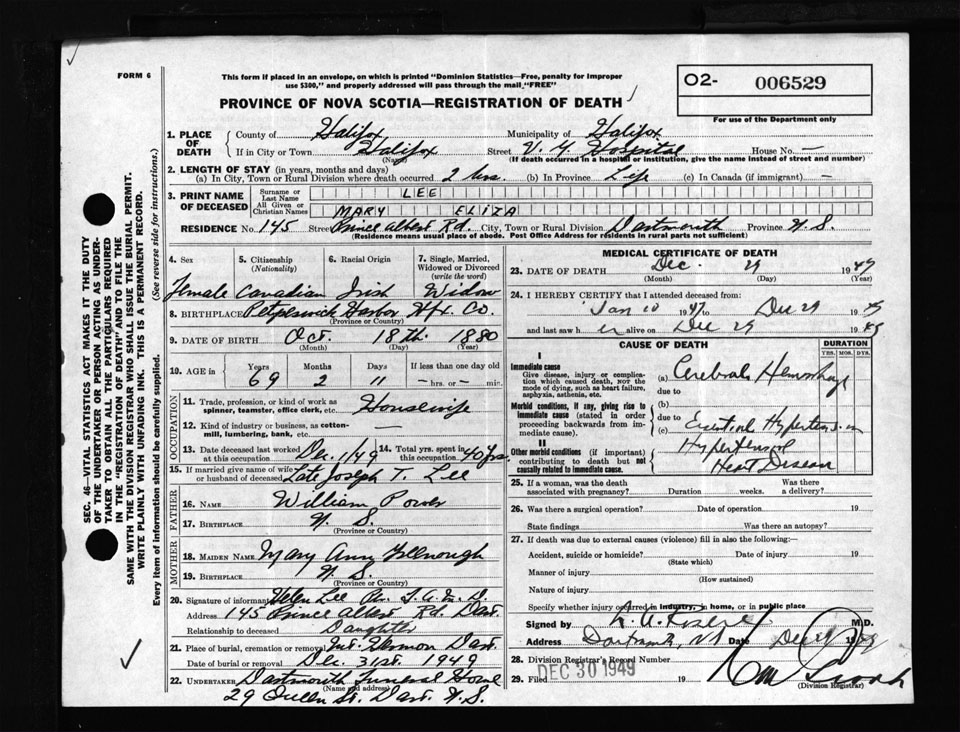 FORM 6
This form if placed in an envelope, on which is printed "Dominion Statistics—Free, penalty for improper
use $300," and properly addressed will pass through the mail "FREE"
PROVINCE OF NOVA SCOTIA—REGISTRATION OF DEATH
O2- 006529
For use of the Department only
SEC. 46—VITAL STATISTICS ACT MAKES IT THE DUTY
OF THE UNDERTAKER OR PERSON ACTING AS UNDER-
TAKER TO OBTAIN ALL THE PARTICULARS REQUIRED
IN THE "REGISTRATION OF DEATH" AND TO FILE THE
SAME WITH THE DIVISION REGISTRAR WHO SHALL ISSUE THE BURIAL PERMIT.
WRITE PLAINLY WITH UNFADING INK. THIS IS A PERMANENT RECORD.
Every item of information should be carefully supplied. (See reverse side for instructions.)
1. PLACE OF DEATH County of Halifax Municipality of Halifax
If in City or Town Halifax Street V. G. Hospital House No. —
(Name) (If death occurred in a hospital or institution, give the name instead of street and number)
2. LENGTH OF STAY (in years, months and days)
(a) In City, Town or Rural Division where death occurred 2 hrs. (b) In Province Life (c) In Canada (if immigrant) —
3. PRINT NAME OF DECEASED Surname or Last Name LEE
All Given or Christian Names MARY ELIZA
RESIDENCE No. 145 Street Prince Albert Rd. City, Town or Rural Division Dartmouth Province N. S.
(Residence means usual place of abode. Post Office Address for residents in rural parts not sufficient)
4. Sex 5. Citizenship (Nationality) 6. Racial Origin 7. Single, Married, Widowed or Divorced (write the word)
Female Canadian Irish Widow
8. BIRTHPLACE Petpeswick Harbor Hfx. Co.
(Province or Country)
9. DATE OF BIRTH Oct. 18th. 1880
(Month) (Day) (Year)
10. AGE Years Months Days If less than one day old
69 2 11 — hrs. or — min.
OCCUPATION
11. Trade, profession, or kind of work as spinner, teamster, office clerk, etc. Housewife
12. Kind of industry or business, as cotton-mill, lumbering, bank, etc.
13. Date deceased last worked at this occupation Dec. 1/49 14. Total yrs. spent in this occupation 40 yrs.
15. If married give name of wife or husband of deceased Late Joseph T. Lee
FATHER
16. NAME William Power
17. BIRTHPLACE N. S.
(Province or Country)
MOTHER
18. MAIDEN NAME Mary Ann
19. BIRTHPLACE N. S.
(Province or Country)
20. Signature of informant Helen Lee
Address 145 Prince Albert Rd. Dart.
Relationship to deceased Daughter
21. Place of burial, cremation or removal Mt. Hermon Dart.
Date of burial or removal Dec. 31st. 1949
22. UNDERTAKER Dartmouth Funeral Home
(Name and address)
29 Queen St. Dart. N. S.
MEDICAL CERTIFICATE OF DEATH
23. DATE OF DEATH Dec. 29 1949
(Month) (Day) (Year)
24. I HEREBY CERTIFY that I attended deceased from:
Jan 10 1947 to Dec 29 19
and last saw h er alive on Dec 29 19
CAUSE OF DEATH DURATION
YRS. MOS. DYS.
I
Immediate cause
Give disease, injury or complication which caused death, NOT the mode of dying, such as heart failure, asphyxia, asthenia, etc.
(a) Cerebral Hemorrhage
due to
Morbid conditions, if any, giving rise to immediate cause (stated in order proceeding backwards from immediate cause).
(b)
due to
(c) Essential Hypertension
II
Other morbid conditions (if important) contributing to death but not causally related to immediate cause.
Heart Disease
25. If a woman, was the death associated with pregnancy? Duration weeks. Was there a delivery?
26. Was there a surgical operation? Date of operation 19
State findings Was there an autopsy?
27. If death was due to external causes (violence) fill in also the following:—
Accident, suicide or homicide? Date of injury 19
(State which)
Manner of injury
(How sustained)
Nature of injury
Specify whether injury occurred in industry, in home, or in public place
Signed by M.D.
Address Dartmouth, NS Date Dec 29 1949
28. Division Registrar's Record Number
29. Filed DEC 30 1949 19
(Division Registrar)